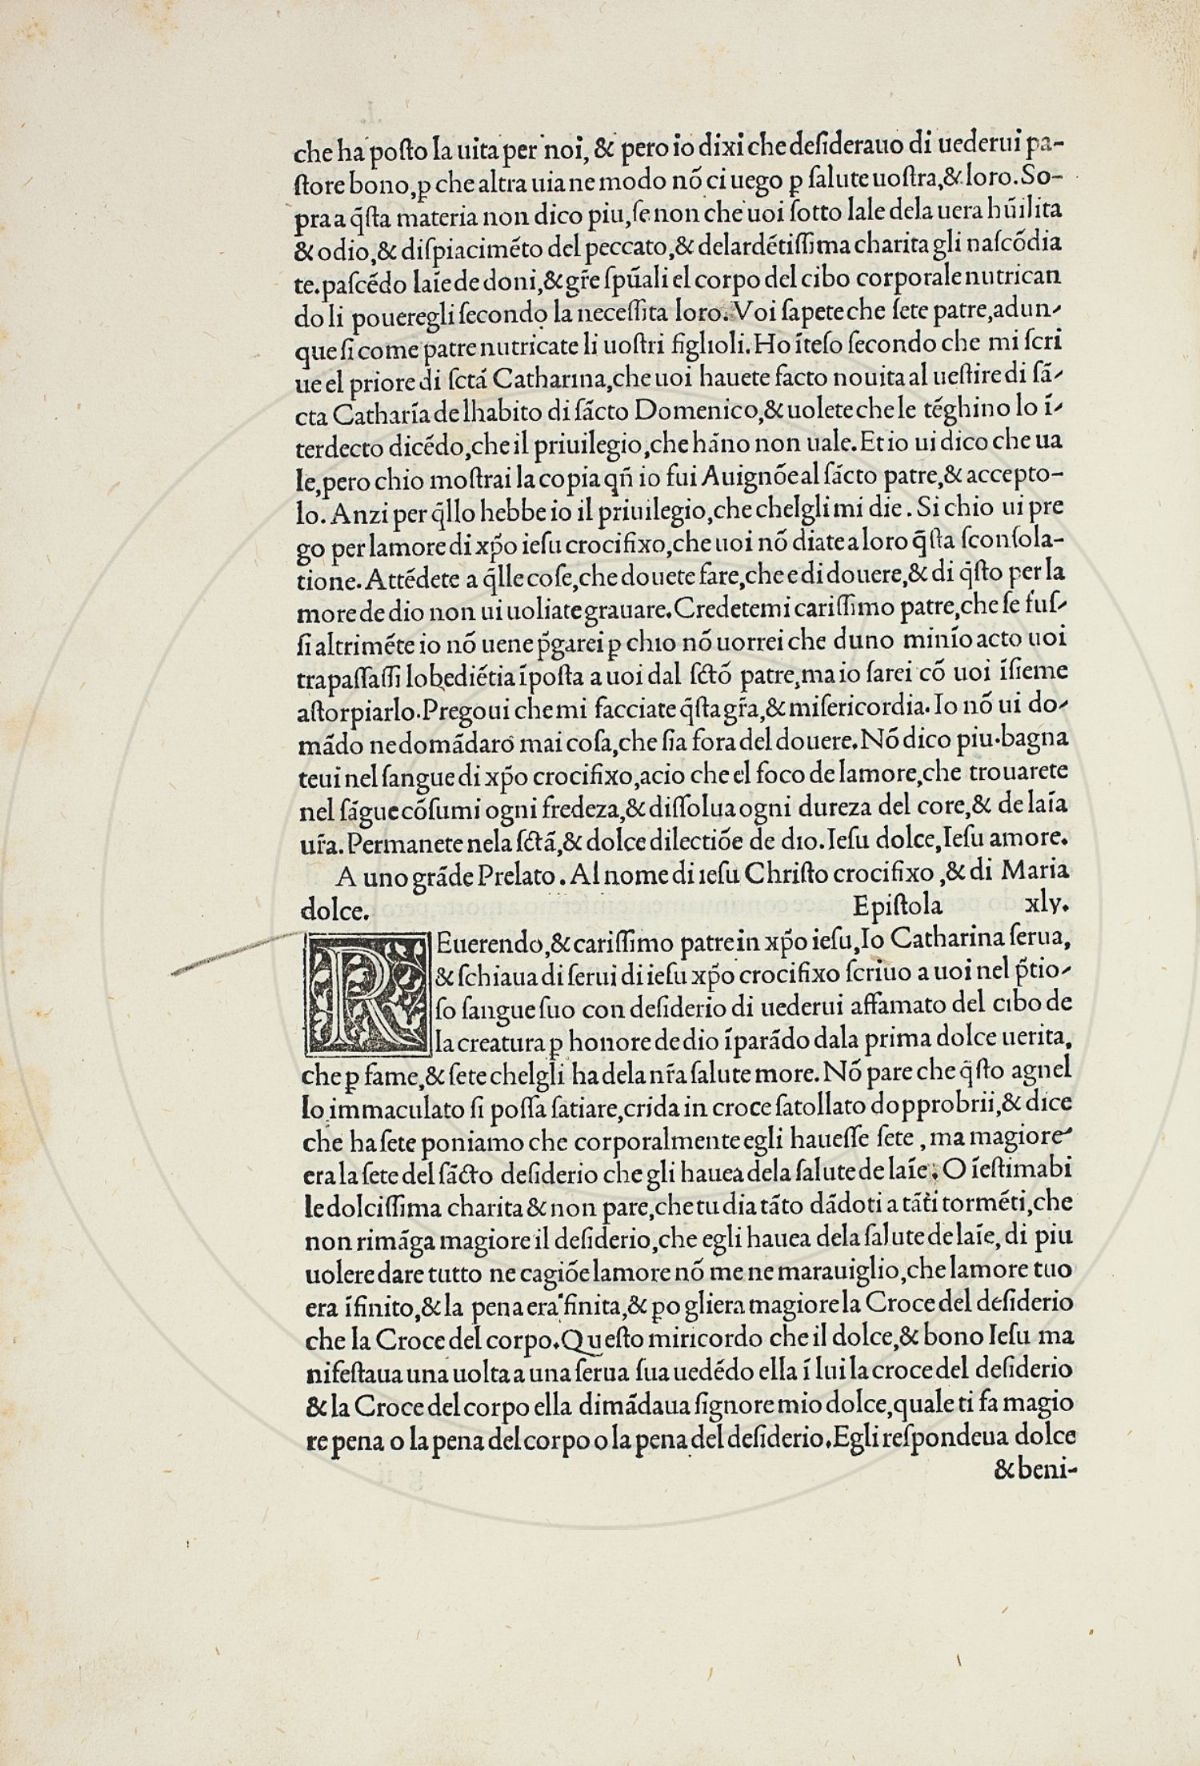 che ha posto la uita per noi, & pero io dixi che desiderauo di uederui pa-
store bono, ꝑ che altra uia ne modo nõ ci uego ꝑ salute uostra, & loro. So-
pra a q̃sta materia non dico piu, se non che uoi sotto lale dela uera hũilita
& odio, & dispiacimẽto del peccato, & delardẽtissima charita gli nascõdia
te. pascẽdo laĩe de doni, & gr̃e spũali el corpo del cibo corporale nutrican
do li poueregli secondo la necessita loro. Voi sapete che sete patre, adun-
que si come patre nutricate li uostri figlioli. Ho ĩteso secondo che mi scri
ue el priore di sctã Catharina, che uoi hauete facto nouita al uestire di sã-
cta Catharĩa de lhabito di sãcto Domenico, & uolete che le tẽghino lo ĩ-
terdecto dicẽdo, che il priuilegio, che hãno non uale. Et io ui dico che ua
le, pero chio mostrai la copia qñ io fui Auignõe al sãcto patre, & accepto-
lo. Anzi per q̃llo hebbe io il priuilegio, che chelgli mi die. Si chio ui pre
go per lamore di xp̃o iesu crocifixo, che uoi nõ diate a loro q̃sta sconsola-
tione. Attẽdete a q̃lle cose, che douete fare, che e di douere, & di q̃sto per la
more de dio non ui uoliate grauare. Credetemi carissimo patre, che se fus-
si altrimẽte io nõ uene p̃garei ꝑ chio nõ uorrei che duno minĩo acto uoi
trapassassi lobediẽtia ĩposta a uoi dal sctõ patre, ma io sarei cõ uoi ĩsieme
a storpiarlo. Pregoui che mi facciate q̃sta gr̃a, & misericordia. Io nõ ui do-
mãdo ne domãdaro mai cosa, che sia fora del douere. Nõ dico piu. bagna
teui nel sangue di xp̃o crocifixo, acio che el foco de lamore, che trouarete
nel sãgue cõsumi ogni fredeza, & dissolua ogni dureza del core, & de laĩa
ur̃a. Permanete nela sctã, & dolce dilectiõe de dio. Iesu dolce, Iesu amore.
A uno grãde Prelato. Al nome di iesu Christo crocifixo, & di Maria
dolce. Epistola xly.
REuerendo, & carissimo patre in xp̃o iesu, Io Catharina serua,
& schiaua di serui di iesu xp̃o crocifixo scriuo a uoi nel p̃tio-
so sangue suo con desiderio di uederui affamato del cibo de
la creatura ꝑ honore de dio ĩparãdo dala prima dolce uerita,
che ꝑ fame, & sete chelgli ha dela nr̃a salute more. Nõ pare che q̃sto agnel
lo immaculato si possa satiare, crida in croce satollato dopprobrii, & dice
che ha sete poniamo che corporalmente egli hauesse sete, ma magiore
era la sete del sãcto desiderio che gli hauea dela salute de laĩe. O ĩestimabi
le dolcissima charita & non pare, che tu dia tãto dãdoti a tãti tormẽti, che
non rimãga magiore il desiderio, che egli hauea dela salute de laĩe, di piu
uolere dare tutto ne cagiõe lamore nõ me ne marauiglio, che lamore tuo
era ĩfinito, & la pena era finita, & ꝑo gliera magiore la Croce del desiderio
che la Croce del corpo. Questo miricordo che il dolce, & bono Iesu ma
nifestaua una uolta a una serua sua uedẽdo ella ĩ lui la croce del desiderio
& la Croce del corpo ella dimãdaua signore mio dolce, quale ti fa magio
re pena o la pena del corpo o la pena del desiderio. Egli respondeua dolce
& beni-